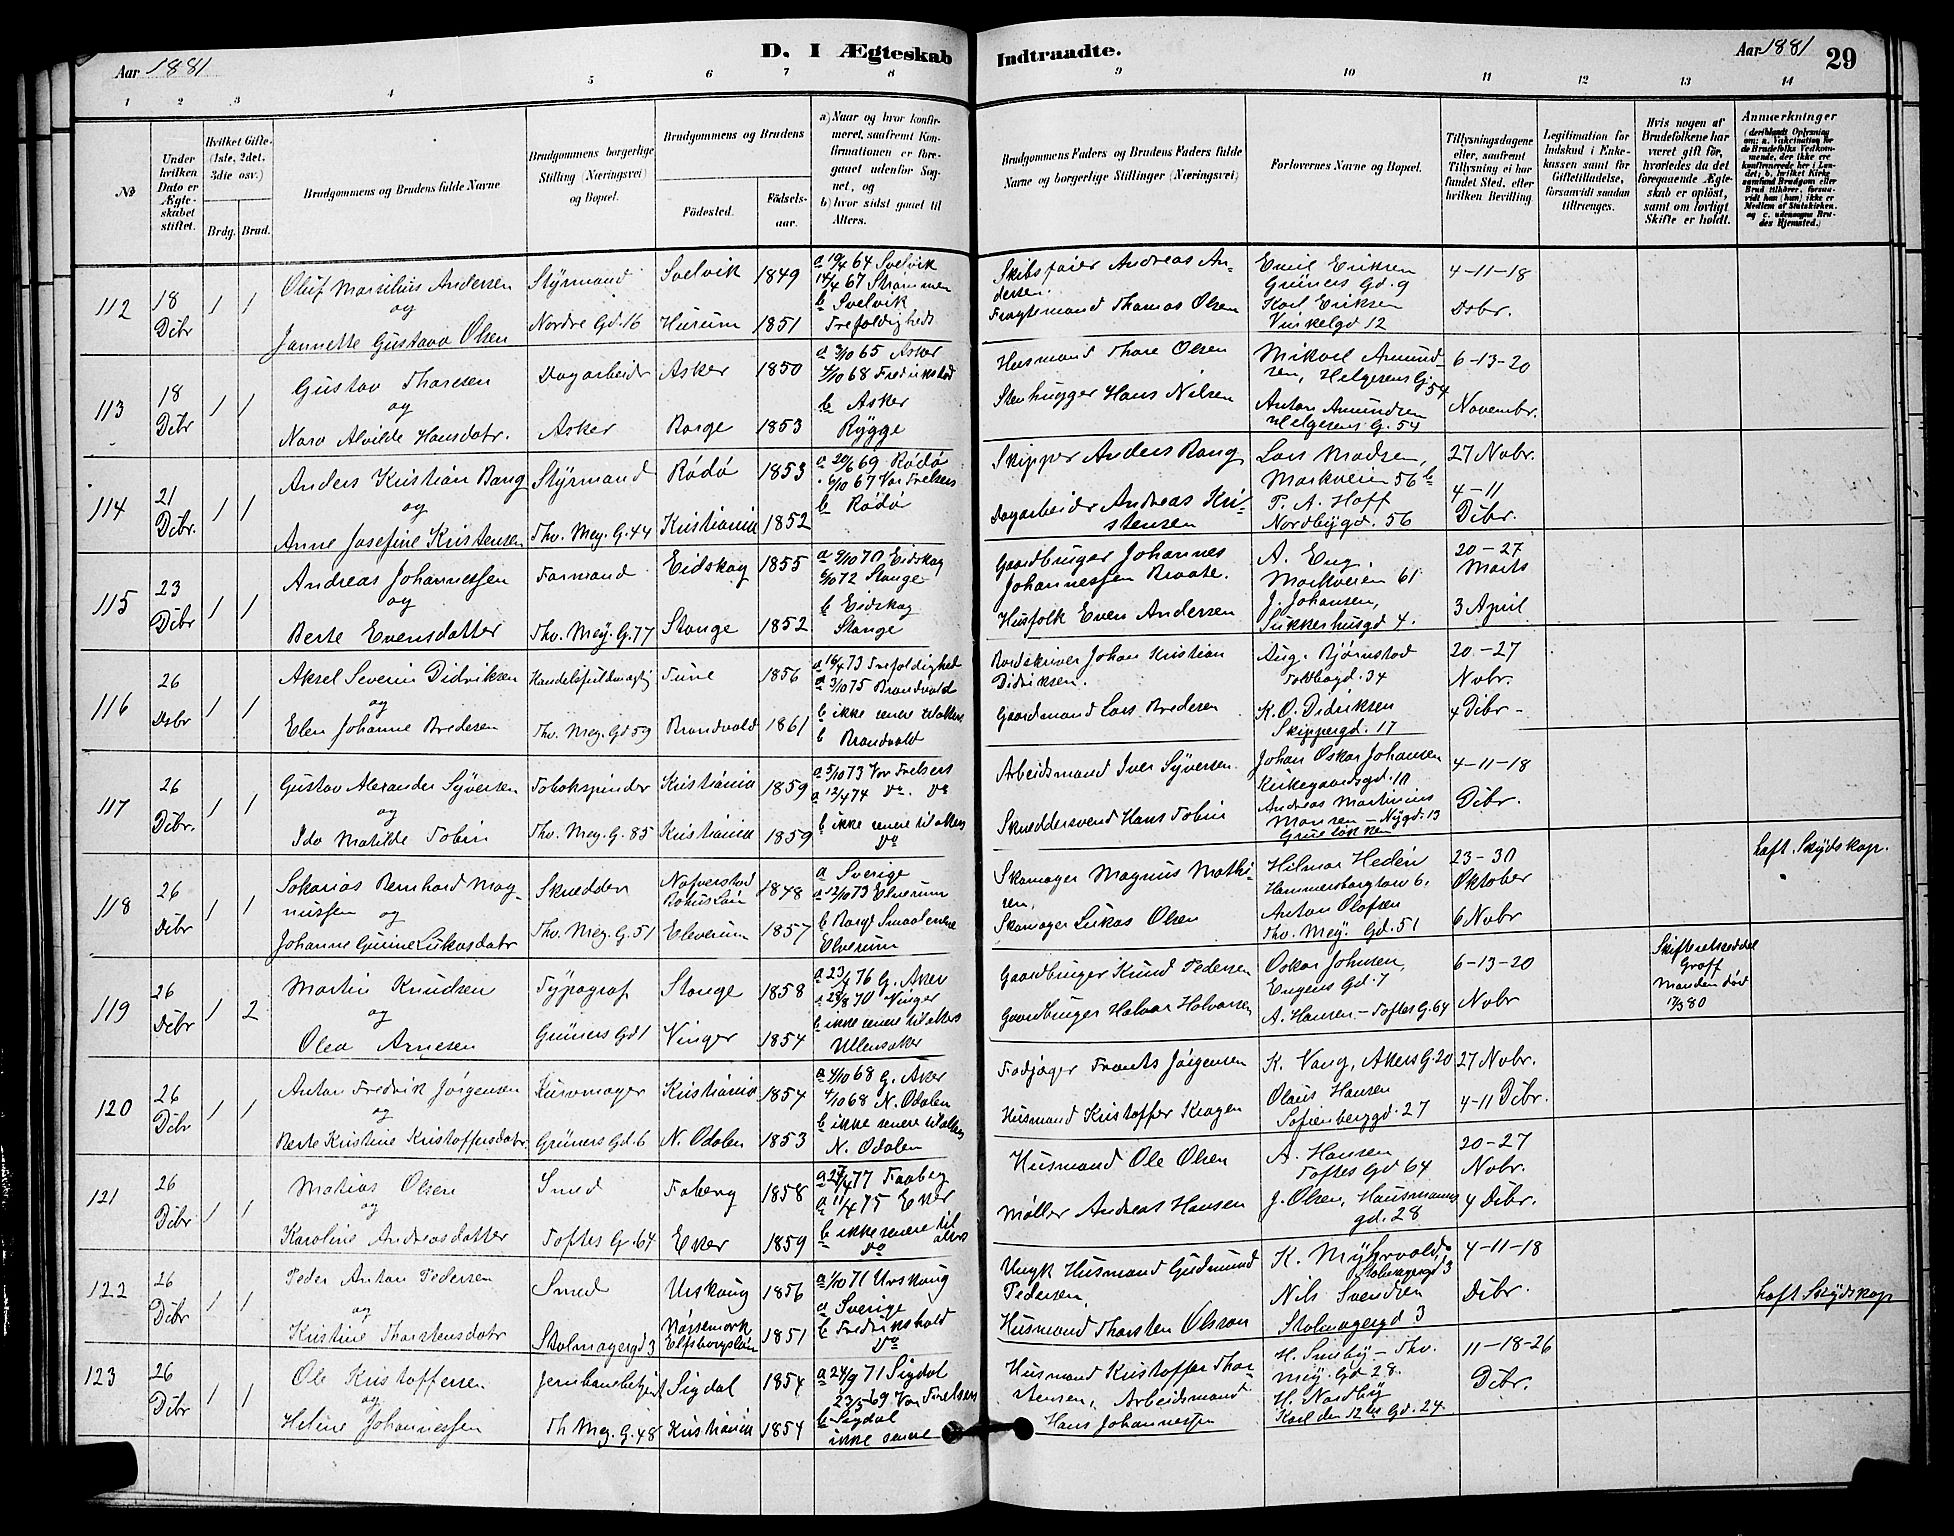 Aar 1881
D. I Ægteskab Indtraadte.
Aar 1881
29
1 2 3 4 5 6 7 8 9 10 11 12 13 14
No
Under hvilken Dato er Ægteskabet stiftet.
Hvilket Gifte (1ste, 2det, 3dte osv.)
Brdg. Brud.
Brudgommens og Brudens fulde Navne
Brudgommens borgerlige Stilling (Næringsvei) og Bopæl.
Brudgommens og Brudens
Fødested.
Fødselsaar.
a) Naar og hvor konfirmeret, saafremt Konfirmationen er foregaaet udenfor Sognet, og
b) hvor sidst gaaet til Alters.
Brudgommens Faders og Brudens Faders fulde Navne og borgerlige Stillinger (Næringsvei)
Forlovernes Navne og Bopæl.
Tillysningsdagene eller, saafremt Tillysning ei har fundet Sted, efter hvilken Bevilling
Legitimation for Indskud i Enkekassen samt for Giftetilladelse, forsaavidt saadan tiltrænges.
Hvis nogen af Brudefolkene har været gift før, hvorledes da det foregaaende Ægteskab er opløst, samt om lovligt Skifte er holdt.
Anmærkninger
112 18 Dcbr 1 1
Oluf Marselius Andersen
og
Jannette Gustava Olsen
Styrmand
Nordre Gd. 16
Svelvik 1849
Hurum 1851
a 19/4 64 Svelvik
14/4 67 Strømmen
b Svelvik
Trefoldigheds
Skibsfører Andreas Andersen.
Fragtemand Thomas Olsen
Emil Eriksen
Grüners Gd. 9
Karl Eriksen
Vinkelgd 12
4-11-18
Dsbr.
113 18 Dcbr 1 1
Gustav Thoresen
og
Nara Alvilde Hansdatr.
Dagarbeider
Asker
Asker 1850
Borge 1853
a 3/10 65 Asker
4/10 68 Fredrikstad
b Asker
Rygge
Husmand Thore Olsen
Stenhugger Hans Nilsen
Mikael Amundsen, Helgesens G. 54
Anton Amundsen
Helgesens G. 54
6-13-20
Novembr.
114 21 Dcbr. 1 1
Anders Kristian Bang
og
Anne Josefine Kristensen
Styrmand
Thv. Mey. G. 44
Rødø 1853
Kristiania 1852
a 20/6 69 Rødø
6/10 67 Vor Frelsers
b Rødø
Skipper Anders Bang
Dagarbeider Andreas Kristensen
Lars Madsen,
Markveien 56 b
P. A. Hoff
Nordbygd. 56
27 Nobr.
4-11
Dcbr.
115 23 Dcbr 1 1
Andreas Johannessen
og
Berte Evensdatter
Formand
Thv. Mey. G. 77
Eidskog 1855
Stange 1852
a 9/10 70 Eidskog
6/10 72 Stange
b Eidskog
Stange
Gaardbruger Johannes
Johannessen Braate.
Husfolk Even Andersen
A. Eng,
Markveien 61
J. Johansen,
Sukkerhusgd 4.
20-27
Marts
3 April
116 26 Dsbr 1 1
Aksel Severin Didriksen
og
Elen Johanne Bredesen
Handelsfuldmægtig
Thv. Mey. Gd 59
Tune 1856
Brandvold 1861
a 16/4 73 Trefoldighed
a 3/10 75 Brandvold
b ikke senere til alters
b Brandvold
Bordskriver Johan Kristian
Didriksen.
Gaardmand Lars Bredesen
Aug. Bjørnstad
Toldbogd. 34
K. O. Didriksen
Skippergd. 17
20-27
Nobr.
4 Dcbr -
117 26 Dcbr. 1 1
Gustav Alexander Syversen
og
Ida Matilde Tobin
Tobakspinder
Thv. Mey. G. 85
Kristiania 1859
Kristiania 1859
a 5/10 73 Vor Frelsers
a 12/4 74 Do. Do
b ikke senere til alters
Do
Arbeidsmand Iver Syversen.
Skreddersvend Hans Tobin
Johan Oskar Johansen
Kirkegaardsgd. 10
Andreas Martinius
Monsen - Nygd. 13
Grueløkken
4-11-18
Dcbr.
118 26 Dcbr 1 1
Sakarias Bernhard Magnussen
og
Johanne Gurine Lukasdatr
Skredder
Thv. Mey. G. 51
Nafverstad
Bohuslän 1848
Elverum 1857
a Sverige
a 12/10 73 Elverum
b Borge Smaalenene
Elverum
Skomager Magnus Mathisen,
Skomager Lukas Olsen
Hilmar Hedén
Hammersborgtorv 6.
Anton Olafsen
Thv. Mey. Gd. 51
23-30
Oktober
6 Nobr
Løst. Skydskop.
119 26 Dcbr 1 2
Martin Knudsen
og
Olea Arnesen
Typograf
Grüners Gd 1
Stange 1858
Vinger 1854
a 23/4 76 G. Aker
a 28/8 70 Vinger
b ikke senere til alters
Ullensaker
Gaardbruger Knud Pedersen
Gaardbruger Halvor Halvorsen
Oskar Johnsen,
Engens Gd. 7
A. Hansen - Toftes G. 64
6-13-20
Nobr
Skifteretseddel
Graff
Manden død
17/3 80
120 26 Dcbr 1 1
Anton Fredrik Jørgensen
og
Berte Kristine Kristoffersdatr.
Kurvmager
Grüners Gd. 6
Kristiania 1854
N. Odalen 1853
a 4/10 68 G. Aker
4/10 68 N. Odalen
b ikke senere til alters
N. Odalen
Fodjæger Frants Jørgensen
Husmand Kristoffer Kragen
K. Vang, Akers G. 20
Olaus Hansen
Sofienberggd. 27
27 Nobr.
4-11 Dcbr.
121 26 Dcbr 1 1
Matias Olsen
og
Karoline Andreasdatter
Smed
Toftes G. 64
Faberg 1858
Eker 1859
a 27/4 77 Faaberg
a 11/4 75 Eker
b ikke senere til alters
Do
Husmand Ole Olsen
Møller Andreas Hansen
A. Hansen
Toftes Gd 64
J. Olsen, Hausmannsgd. 28
20-27
Nobr.
4 Dcbr.
122 26 Dcbr 1 1
Peder Anton Pedersen
og
Kristine Thorstensdatr
Smed
Stolmagergd 3
Urskoug 1856
Nøssemark
Elfsborgslän 1851
a 1/10 71 Urskoug
a Sverige
b Fredrikshald
Do
Ungk Husmand Gudmund
Pedersen,
Husmand Thorsten Olsson
K. Myhrvold,
Stolmagergd 3
Nils Svendsen
Stolmagergd 3
4-11-18
Dcbr.
Løst Skydskop
123 26 Dcbr 1 1
Ole Kristoffersen
og
Heline Johannessen
Jernbanebetjent
Th Mey. G. 48
Sigdal 1854
Kristiania 1854
a 24/9 71 Sigdal
23/5 69 Vor Frelsers
b Sigdal
ikke senere
Husmand Kristoffer Thorstensen, Arbeidsmand
Hans Johannessen
H. Smeby - Thv.
Mey. Gd 28.
H. Nordby
Karl den 12tes Gd. 24
11-18-26
Dcbr.